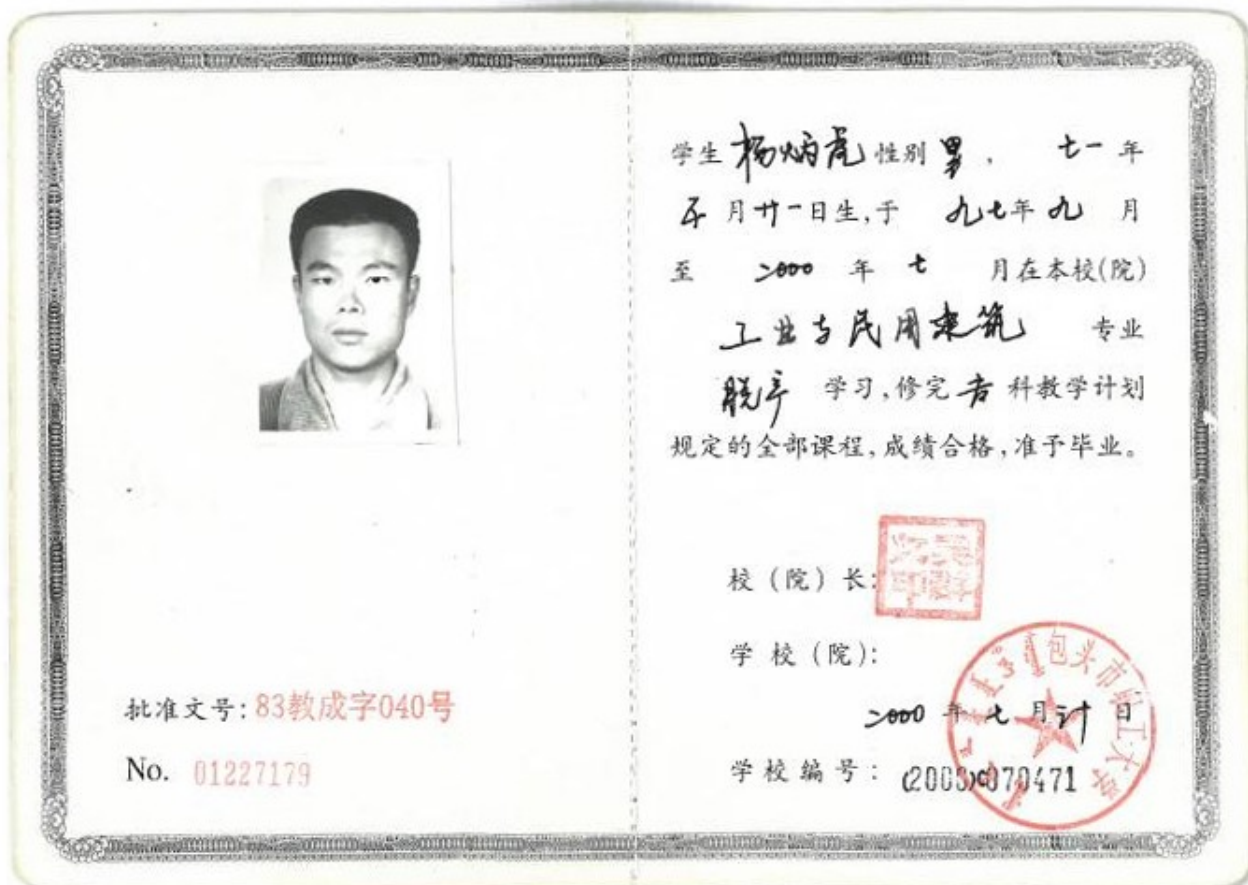 批准文号: 83教成字040号
No. 01227179
学生 杨炳虎 性别 男, 七一 年
五 月 廿一 日生,于 九七 年 九 月
至 二000 年 七 月在本校(院)
工业与民用建筑 专业
脱产 学习,修完 专 科教学计划
规定的全部课程,成绩合格,准予毕业。
校(院)长:
学校(院):
包头市职工大学
二000 年 七 月 日
学校编号: (2000)070471